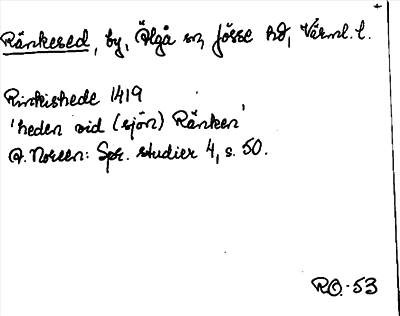 Ränkesed, by, Älgå sn, Jösse hd, Värml. l.
Rinkishede 1419
'heden vid (sjön) Ränken'
A. Noreen: Spr. studier 4, s. 50.
RO. 53